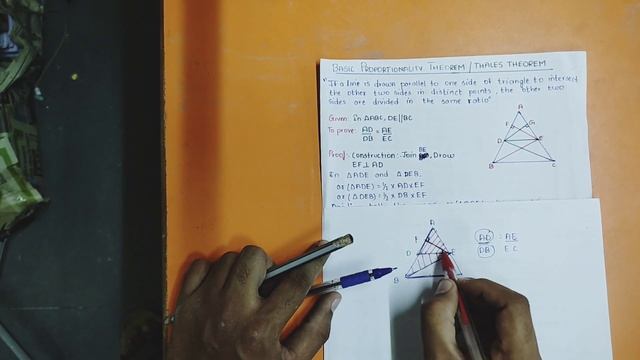 BASIC PROPORTIONALITY THEOREM / THALES THEOREM
"If a line is drawn parallel to one side of triangle to intersect
the other two sides in distinct points, the other two
sides are divided in the same ratio"
Given: In ΔABC, DE//BC
To prove: AD/DB = AE/EC
Proof: Construction: Join BE, Draw
EF⊥AD
In ΔADE and ΔDEB,
ar (ΔADE) = 1/2 x AD x EF
ar (ΔDEB) = 1/2 x DB x EF
A
F G
D E
B C
A
F
D E
B
AD = AE
DB EC